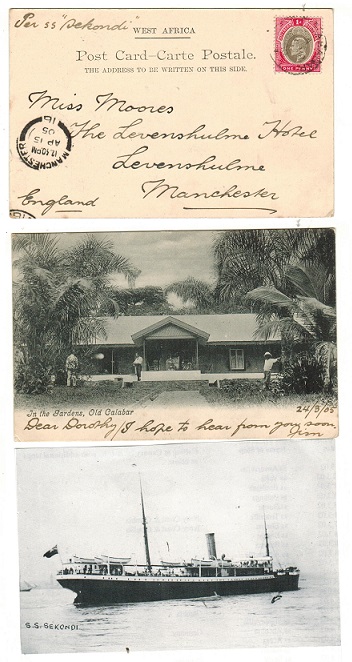 Per ss "Sekondi"
WEST AFRICA
Post Card–Carte Postale.
THE ADDRESS TO BE WRITTEN ON THIS SIDE.
ONE PENNY
Miss Moores
The Levenshulme Hotel
Levenshulme
Manchester
England
MANCHESTER
12.40PM
AP 15
05
In the Gardens, Old Calabar
24/3/05
Dear Dorothy/I hope to hear from you soon
Jim
S.S. SEKONDI